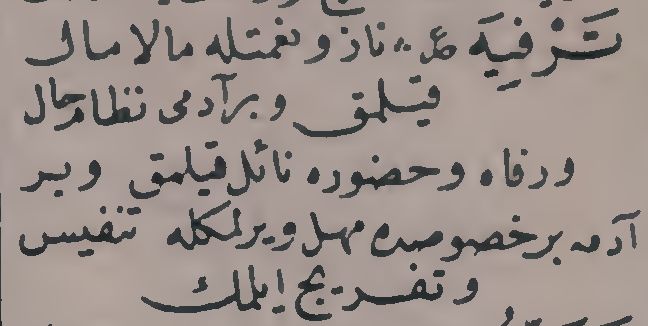 تَرْفِيَه ع ناز و نعمتله مالامال
قيلمق وبر آدمى نظام حال
ورفاه وحضوره نائل قيلمق وبر
آدمه بر خصوصده مهل ويرلمكله تنفيس
وتفريج ايلمك